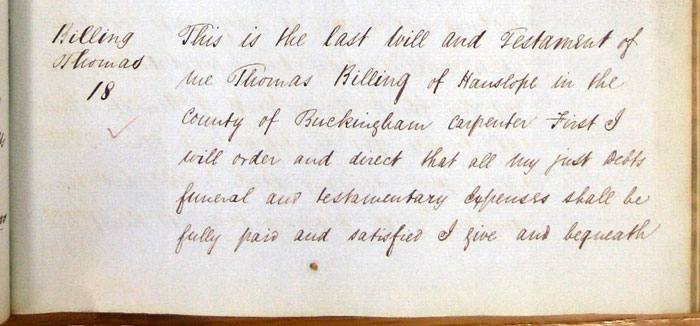 Billing
Thomas
18
This is the last Will and Testament of
me Thomas Billing of Hanslope in the
County of Buckingham Carpenter First I
will order and direct that all my just Debts
funeral and testamentary Expenses shall be
fully paid and satisfied I give and bequeath